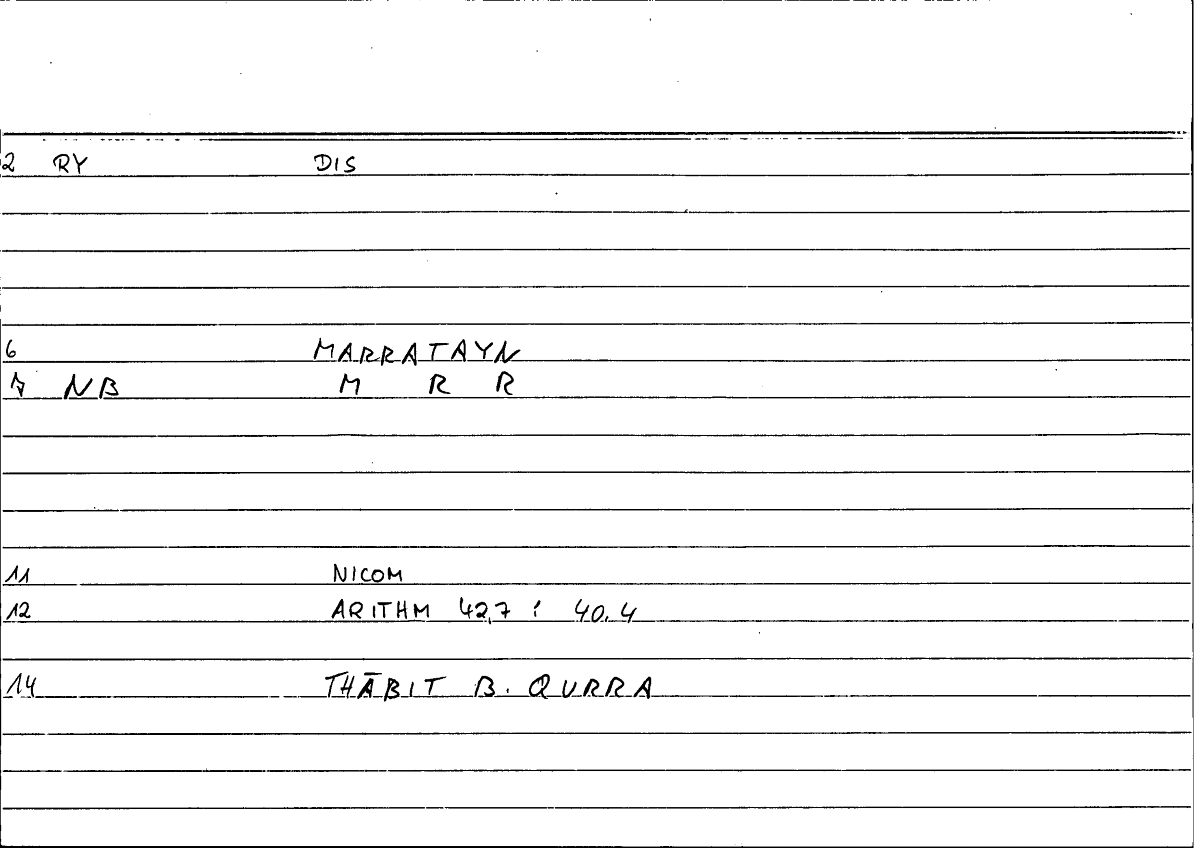 2 RY DIS
6 MARRATAYN
7 NB M R R
11 NICOM
12 ARITHM 42,7 ; 40.4
14 THĀBIT B. QURRA